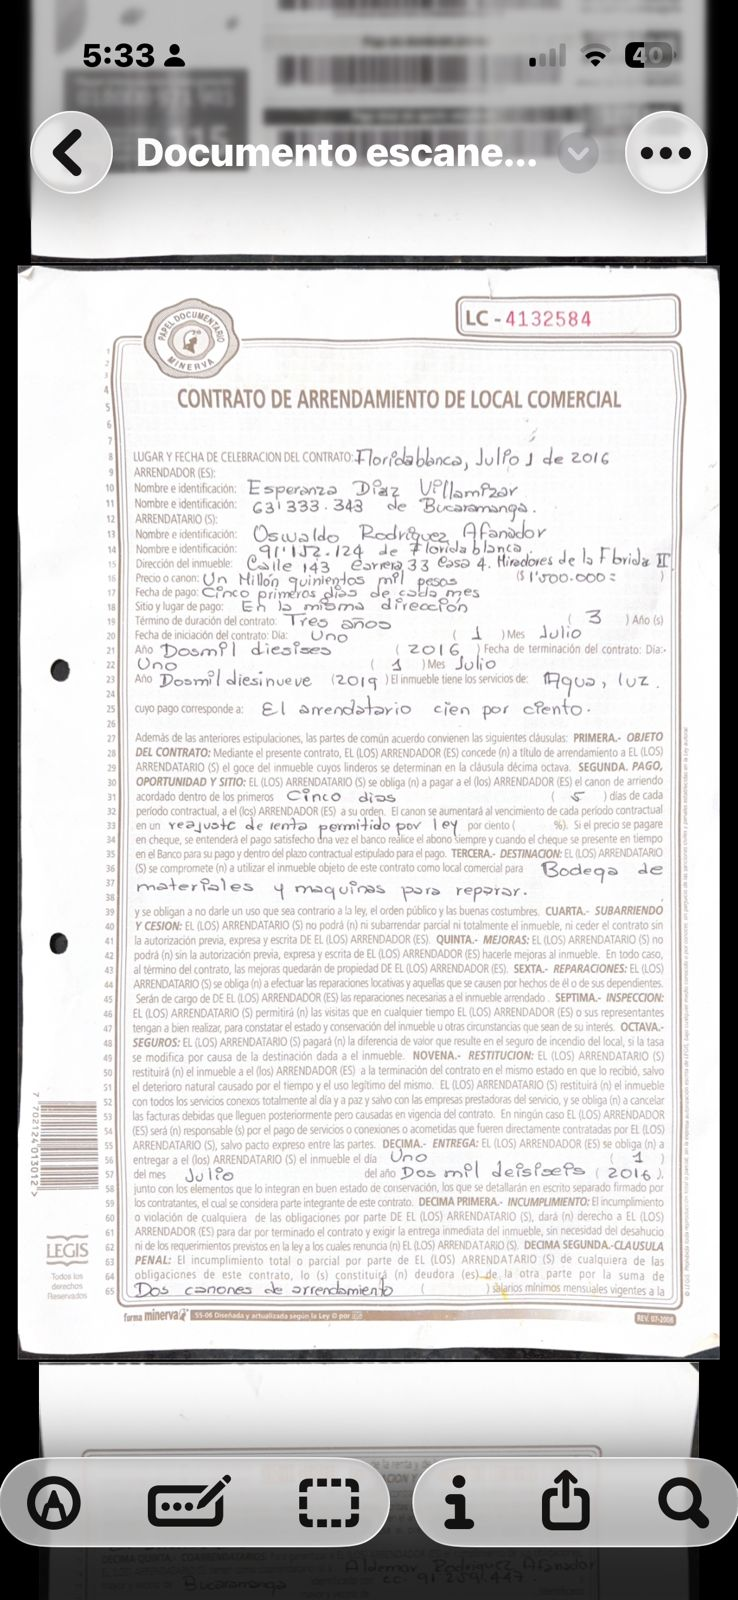 5:33
40
Documento escane...
PAPEL DOCUMENTARIO
MINERVA
LC - 4132584
CONTRATO DE ARRENDAMIENTO DE LOCAL COMERCIAL
LUGAR Y FECHA DE CELEBRACION DEL CONTRATO: Floridablanca, Julio 1 de 2016
ARRENDADOR (ES):
Nombre e identificación: Esperanza Díaz Villamizar
Nombre e identificación: 63'333.343 de Bucaramanga.
ARRENDATARIO (S):
Nombre e identificación: Oswaldo Rodríguez Afanador
Nombre e identificación: 91'152.124 de Florida blanca.
Dirección del inmueble: Calle 143 Carrera 33 Casa 4. Miradores de la Florida II.
Precio o canon: Un Millón quinientos mil pesos ($ 1'500.000= )
Fecha de pago: Cinco primeros días de cada mes
Sitio y lugar de pago: En la misma dirección
Término de duración del contrato: Tres años ( 3 ) Año (s)
Fecha de iniciación del contrato: Día: Uno ( 1 ) Mes Julio
Año Dosmil diesises ( 2016 ) Fecha de terminación del contrato: Día:-
Uno ( 1 ) Mes Julio
Año Dosmil diesinueve (2019 ) El inmueble tiene los servicios de: Agua, luz.
cuyo pago corresponde a: El arrendatario cien por ciento.
Además de las anteriores estipulaciones, las partes de común acuerdo convienen las siguientes cláusulas: PRIMERA.- OBJETO
DEL CONTRATO: Mediante el presente contrato, EL (LOS) ARRENDADOR (ES) concede (n) a título de arrendamiento a EL (LOS)
ARRENDATARIO (S) el goce del inmueble cuyos linderos se determinan en la cláusula décima octava. SEGUNDA. PAGO,
OPORTUNIDAD Y SITIO: EL (LOS) ARRENDATARIO (S) se obliga (n) a pagar a el (los) ARRENDADOR (ES) el canon de arriendo
acordado dentro de los primeros Cinco días ( 5 ) días de cada
período contractual, a el (los) ARRENDADOR (ES) a su orden. El canon se aumentará al vencimiento de cada período contractual
en un reajuste de renta permitido por ley por ciento ( %). Si el precio se pagare
en cheque, se entenderá el pago satisfecho una vez el banco realice el abono siempre y cuando el cheque se presente en tiempo
en el Banco para su pago y dentro del plazo contractual estipulado para el pago. TERCERA.- DESTINACION: EL (LOS) ARRENDATARIO
(S) se compromete (n) a utilizar el inmueble objeto de este contrato como local comercial para Bodega de
materiales y maquinas para reparar.
y se obligan a no darle un uso que sea contrario a la ley, el orden público y las buenas costumbres. CUARTA.- SUBARRIENDO
Y CESION: EL (LOS) ARRENDATARIO (S) no podrá (n) ni subarrendar parcial ni totalmente el inmueble, ni ceder el contrato sin
la autorización previa, expresa y escrita DE EL (LOS) ARRENDADOR (ES). QUINTA.- MEJORAS: EL (LOS) ARRENDATARIO (S) no
podrá (n) sin la autorización previa, expresa y escrita de EL (LOS) ARRENDADOR (ES) hacerle mejoras al inmueble. En todo caso,
al término del contrato, las mejoras quedarán de propiedad DE EL (LOS) ARRENDADOR (ES). SEXTA.- REPARACIONES: EL (LOS)
ARRENDATARIO (S) se obliga (n) a efectuar las reparaciones locativas y aquellas que se causen por hechos de él o de sus dependientes.
Serán de cargo de DE EL (LOS) ARRENDADOR (ES) las reparaciones necesarias a el inmueble arrendado . SEPTIMA.- INSPECCION:
EL (LOS) ARRENDATARIO (S) permitirá (n) las visitas que en cualquier tiempo EL (LOS) ARRENDADOR (ES) o sus representantes
tengan a bien realizar, para constatar el estado y conservación del inmueble u otras circunstancias que sean de su interés. OCTAVA.-
SEGUROS: EL (LOS) ARRENDATARIO (S) pagará (n) la diferencia de valor que resulte en el seguro de incendio del local, si la tasa
se modifica por causa de la destinación dada a el inmueble. NOVENA.- RESTITUCION: EL (LOS) ARRENDATARIO (S)
restituirá (n) el inmueble a el (los) ARRENDADOR (ES) a la terminación del contrato en el mismo estado en que lo recibió, salvo
el deterioro natural causado por el tiempo y el uso legítimo del mismo. EL (LOS) ARRENDATARIO (S) restituirá (n) el inmueble
con todos los servicios conexos totalmente al día y a paz y salvo con las empresas prestadoras del servicio, y se obliga (n) a cancelar
las facturas debidas que lleguen posteriormente pero causadas en vigencia del contrato. En ningún caso EL (LOS) ARRENDADOR
(ES) será (n) responsable (s) por el pago de servicios o conexiones o acometidas que fueren directamente contratadas por EL (LOS)
ARRENDATARIO (S), salvo pacto expreso entre las partes. DECIMA.- ENTREGA: EL (LOS) ARRENDADOR (ES) se obliga (n) a
entregar a el (los) ARRENDATARIO (S) el inmueble el día Uno ( 1 )
del mes Julio del año Dos mil deisiseis ( 2016 ),
junto con los elementos que lo integran en buen estado de conservación, los que se detallarán en escrito separado firmado por
los contratantes, el cual se considera parte integrante de este contrato. DECIMA PRIMERA.- INCUMPLIMIENTO: El incumplimiento
o violación de cualquiera de las obligaciones por parte DE EL (LOS) ARRENDATARIO (S), dará (n) derecho a EL (LOS)
ARRENDADOR (ES) para dar por terminado el contrato y exigir la entrega inmediata del inmueble, sin necesidad del desahucio
ni de los requerimientos previstos en la ley a los cuales renuncia (n) EL (LOS) ARRENDATARIO (S). DECIMA SEGUNDA.-CLAUSULA
PENAL: El incumplimiento total o parcial por parte de EL (LOS) ARRENDATARIO (S) de cualquiera de las
obligaciones de este contrato, lo (s) constituirá (n) deudora (es) de la otra parte por la suma de
Dos canones de arrendamiento ( ) salarios mínimos mensuales vigentes a la
7 702124 013012 >
LEGIS
Todos los
derechos
Reservados
forma minerva 55-06 Diseñada y actualizada según la Ley © por
REV. 07-2008
DECIMA QUINTA.- COARRENDATARIOS:
Aldemar Rodriguez Afanador
Bucaramanga